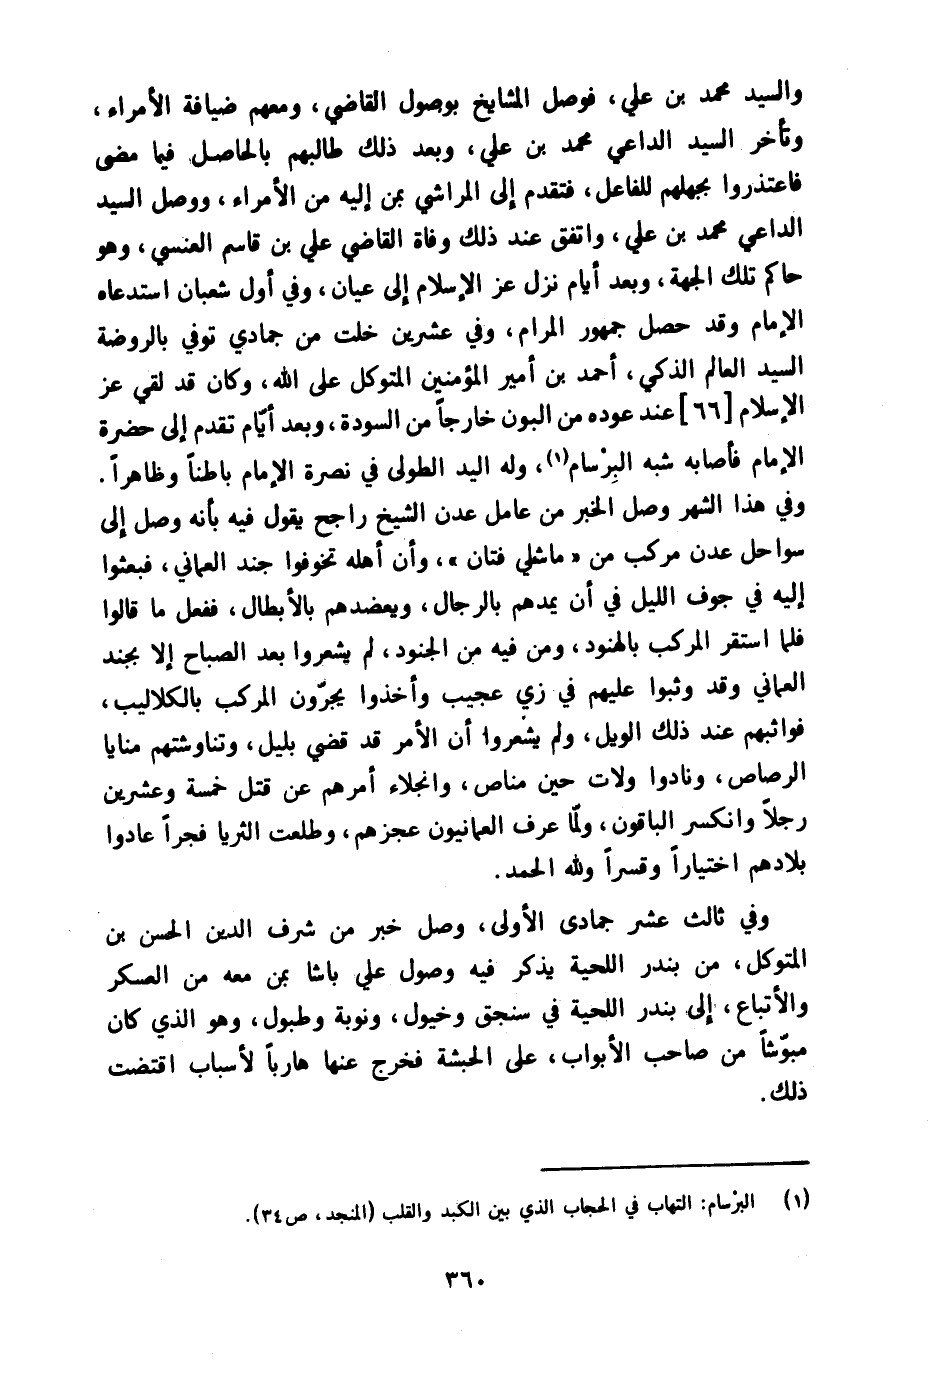 والسيد محمد بن علي، فوصل المشايخ بوصول القاضي، ومعهم ضيافة الأمراء،
وتأخر السيد الداعي محمد بن علي، وبعد ذلك طالبهم بالحاصل فيما مضى
فاعتذروا بجهلهم للفاعل، فتقدم إلى المراشي بمن إليه من الأمراء، ووصل السيد
الداعي محمد بن علي، واتفق عند ذلك وفاة القاضي علي بن قاسم العنسي، وهو
حاكم تلك الجهة، وبعد أيام نزل عز الإسلام إلى عيان، وفي أول شعبان استدعاه
الإمام وقد حصل جمهور المرام، وفي عشرين خلت من جمادي توفي بالروضة
السيد العالم الذكي، أحمد بن أمير المؤمنين المتوكل على الله، وكان قد لقي عز
الإسلام [٦٦] عند عوده من البون خارجاً من السودة، وبعد أيّام تقدم إلى حضرة
الإمام فأصابه شبه البِرْسام(١)، وله اليد الطولى في نصرة الإمام باطناً وظاهراً.
وفي هذا الشهر وصل الخبر من عامل عدن الشيخ راجح يقول فيه بأنه وصل إلى
سواحل عدن مركب من «ماشلي فتان»، وأن أهله تخوفوا جند العماني، فبعثوا
إليه في جوف الليل في أن يمدهم بالرجال، ويعضدهم بالأبطال، ففعل ما قالوا
فلما استقر المركب بالهنود، ومن فيه من الجنود، لم يشعروا بعد الصباح إلا بجند
العماني وقد وثبوا عليهم في زي عجيب وأخذوا يجرّون المركب بالكلاليب،
فواثبهم عند ذلك الويل، ولم يشعروا أن الأمر قد قضي بليل، وتناوشتهم منايا
الرصاص، ونادوا ولات حين مناص، وانجلاء أمرهم عن قتل خمسة وعشرين
رجلاً وانكسر الباقون، ولمّا عرف العمانيون عجزهم، وطلعت الثريا فجراً عادوا
بلادهم اختياراً وقسراً ولله الحمد.
وفي ثالث عشر جمادى الأولى، وصل خبر من شرف الدين الحسن بن
المتوكل، من بندر اللحية يذكر فيه وصول علي باشا بمن معه من العسكر
والأتباع، إلى بندر اللحية في سنجق وخيول، ونوبة وطبول، وهو الذي كان
مبوّشاً من صاحب الأبواب، على الحبشة فخرج عنها هارباً لأسباب اقتضت
ذلك.
(١) البرْسام: التهاب في الحجاب الذي بين الكبد والقلب (المنجد، ص٣٤).
٣٦٠